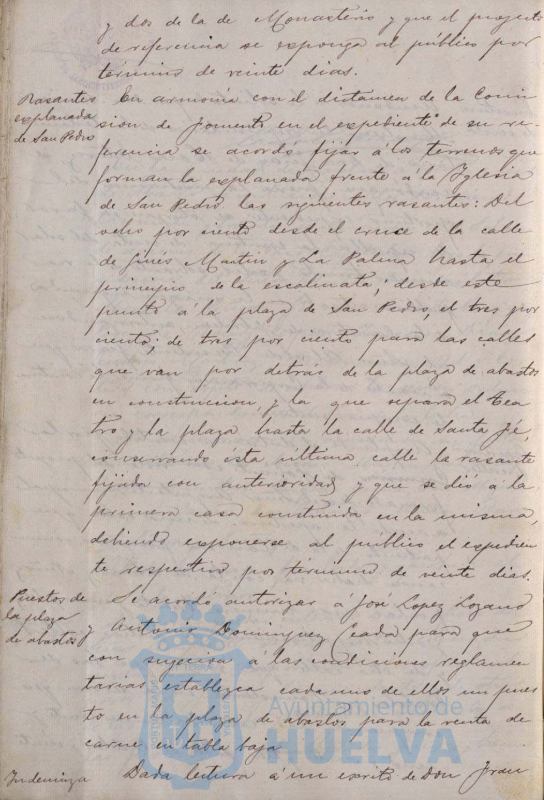 y dos de la de Monasterio y que el proyecto
de referencia se exponga al público por
término de veinte dias.
Rasantes
explanada
de San Pedro
En armonía con el dictamen de la Comi
sion de fomento en el expediente de su re-
ferencia se acordó fijar á los terrenos que
forman la explanada frente á la Yglesia
de San Pedro las siguientes rasantes: Del
ocho por ciento desde el cruce de la calle
de Ginés Martin y La Palma hasta el
principio de la escalinata; desde este
punto á la plaza de San Pedro, el tres por
ciento; de tres por ciento para las calles
que van por detrás de la plaza de abastos
en construccion y la que separa el tea
tro y la plaza hasta la calle de Santa Fé,
conservando esta última calle la rasante
fijada con anterioridad y que se dió a la
primera casa construida en la misma,
debiendo exponerse al público el expedien
te respectivo por término de veinte dias.
Puestos de
la plaza
de abastos
Se acordó autorizar á José Lopez Lozano
y Antonio Dominguez para que
con sujecion á las condiciones reglamen
tarias establezca cada uno de ellos un pues
to en la plaza de abastos para la venta de
carne en tabla baja
Indemniza
Dada lectura á un escrito de Don Fran
Ayuntamiento de
HUELVA